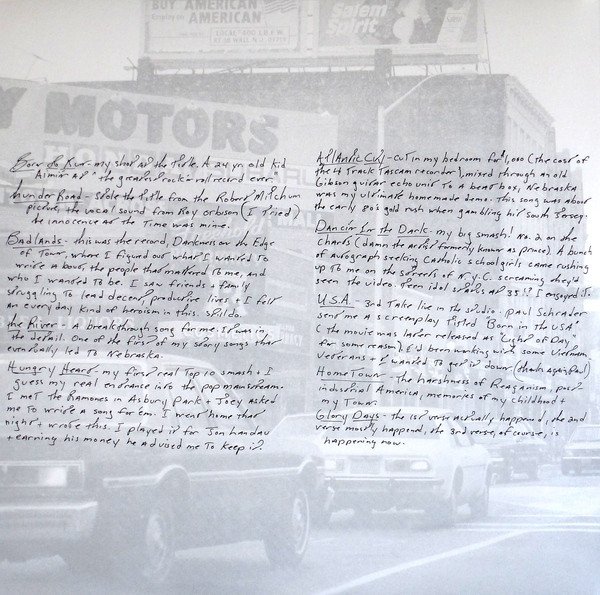 BUY AMERICAN
AMERICAN
LOCAL 400 I.U.E.
Salem
Spirit
Y MOTORS
Born to Run - my shot at the title. A 24 yr old kid
Aimin at "the greatest rock n roll record ever."
Thunder Road - Stole the title from the Robert Mitchum
picture, the vocal sound from Roy Orbison (I tried)
the innocence at the time was mine.
Badlands - this was the record, Darkness on the Edge
of Town, where I figured out what I wanted to
write about, the people that mattered to me, and
who I wanted to be. I saw friends + family
struggling to lead decent, productive lives + I felt
an everyday kind of heroism in this. still do.
the River - A breakthrough song for me. It was in
the detail. One of the first of my story songs that
eventually led to Nebraska.
Hungry Heart - my first real top 10 smash + I
guess my real entrance into the pop mainstream.
I met the Ramones in Asbury Park + Joey asked
me to write a song for em. I went home that
night + wrote this. I played it for Jon Landau
+ earning his money he advised me to keep it.
Atlantic City - cut in my bedroom for $1,050 (the cost of
the 4 Track Tascam recorder), mixed through an old
Gibson guitar echo unit to a beat box, Nebraska
was my ultimate home demo. This song was about
the early 80's gold rush when gambling hit South Jersey.
Dancin In the Dark - my big smash! no. 2 on the
charts (damn the artist formerly known as prince). A bunch
of autograph seeking Catholic schoolgirls came rushing
up to me on the streets of N.Y.C. screaming they'd
seen the video. Teen idol status at 35!? I enjoyed it.
U.S.A. - 3rd Take live in the studio. Paul Schrader
sent me a screenplay titled "Born in the USA"
(the movie was later released as "Light of Day"
for some reason), I'd been working with some Vietnam
Veterans + I wanted to get it down (thanks again Paul)
HomeTown - the harshness of Reaganism, post
industrial America, memories of my childhood +
my Town.
Glory Days - the 1st verse actually happened, the 2nd
verse mostly happened, the 3rd verse, of course, is
happening now.